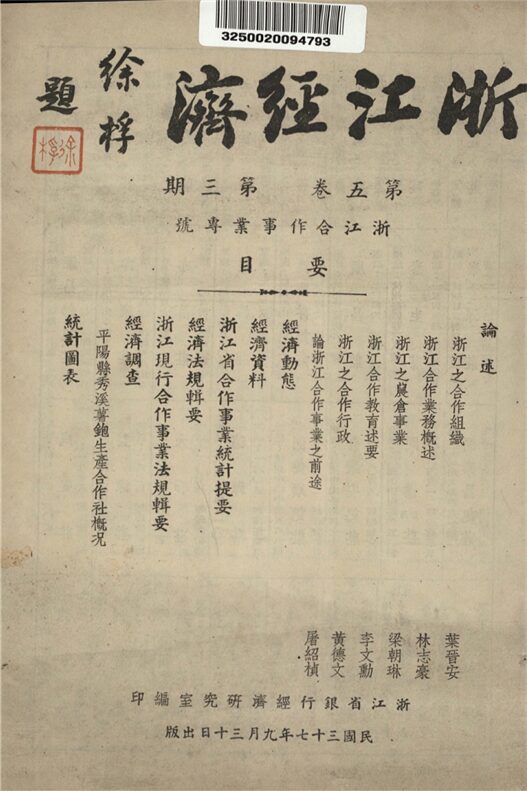 3250020094793
浙江經濟
徐桴
題
徐桴
第五卷 第三期
浙江合作事業專號
要目
論述
浙江之合作組織 葉晉安
浙江合作業務概述 林志豪
浙江之農倉事業 梁朝琳
浙江合作教育述要 李文勳
浙江之合作行政 黃德文
論浙江合作事業之前途 屠紹楨
經濟動態
經濟資料
浙江省合作事業統計提要
經濟法規輯要
浙江現行合作事業法規輯要
經濟調查
平陽縣秀溪薯鉋生產合作社概況
統計圖表
浙江省銀行經濟研究室編印
民國三十七年九月三十日出版